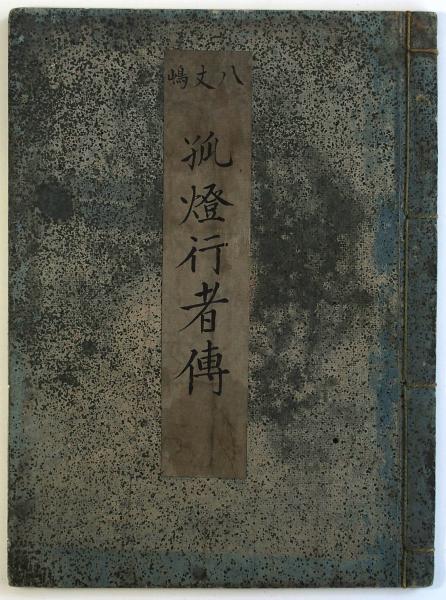 八丈嶋
孤燈行者傳